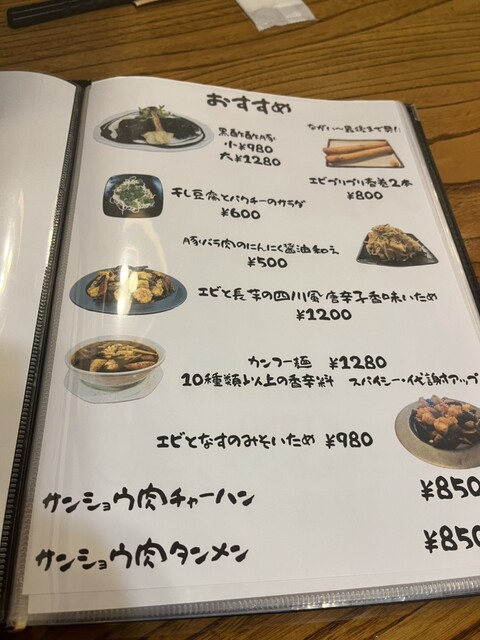 おすすめ
黒酢酢豚
小¥980
大¥1280
ながい〜最後まで具!!
エビプリプリ春巻2本
¥800
干し豆腐とパクチーのサラダ
¥600
豚バラ肉のにんにく醤油和え
¥500
エビと長芋の四川風唐辛子香味いため
¥1200
カンフー麺 ¥1280
10種類以上の香辛料 スパイシー・代謝アップ
エビとなすのみそいため ¥980
サンショウ肉チャーハン ¥850
サンショウ肉タンメン ¥850